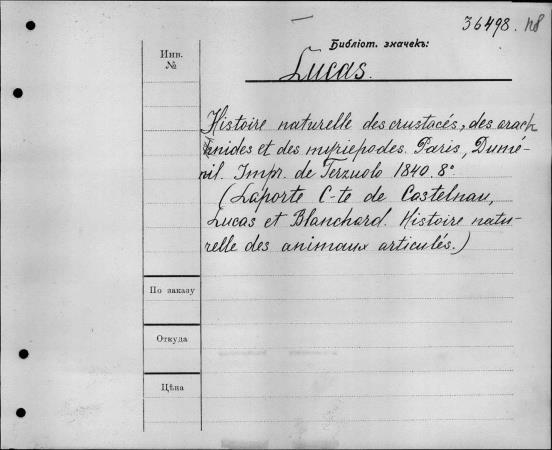 36498.
Инв.
№
Библіот. значекъ:
Lucas.
Histoire naturelle des crustacés, des arach
nides et des myriepodes. Paris, Dumé-
nil. Impr. de Terzuolo 1840. 8°
(Laporte C-te de Castelnau,
Lucas et Blanchard. Histoire natu-
relle des animaux articulés.)
По заказу
Откуда
Цѣна